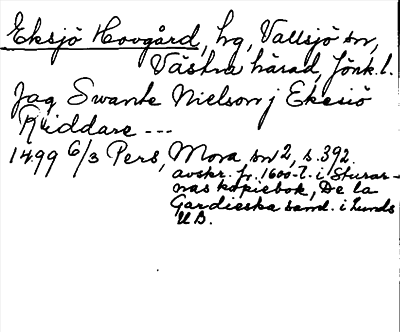 Eksjö Hovgård, hg, Vallsjö sn,
Västra härad, Jönk.l.
Jag Swante Nielson j Ekesiö
Riddare ---
1499 6/3 Pers, Mora sn 2, s. 392.
avskr. fr. 1600-t. i Sturar-
nas kopiebok, De la
Gardieska saml. i Lunds
UB.